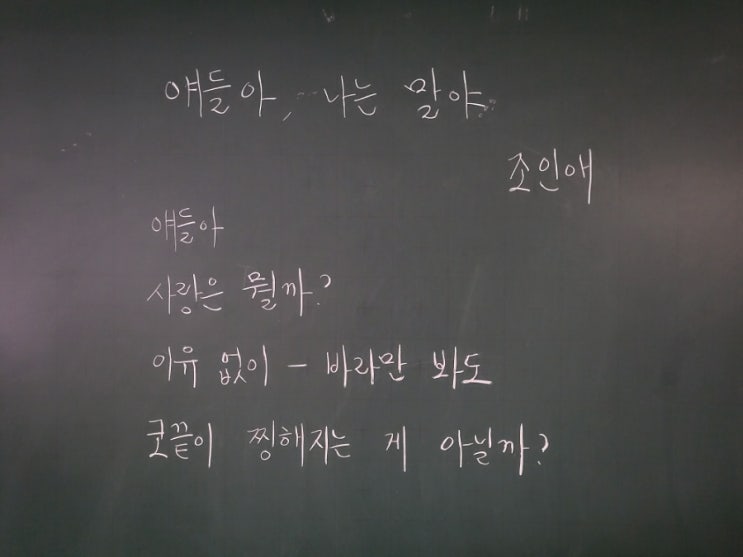 얘들아, 나는 말야
조인애
얘들아
사랑은 뭘까?
이유 없이 - 바라만 봐도
코끝이 찡해지는 게 아닐까?